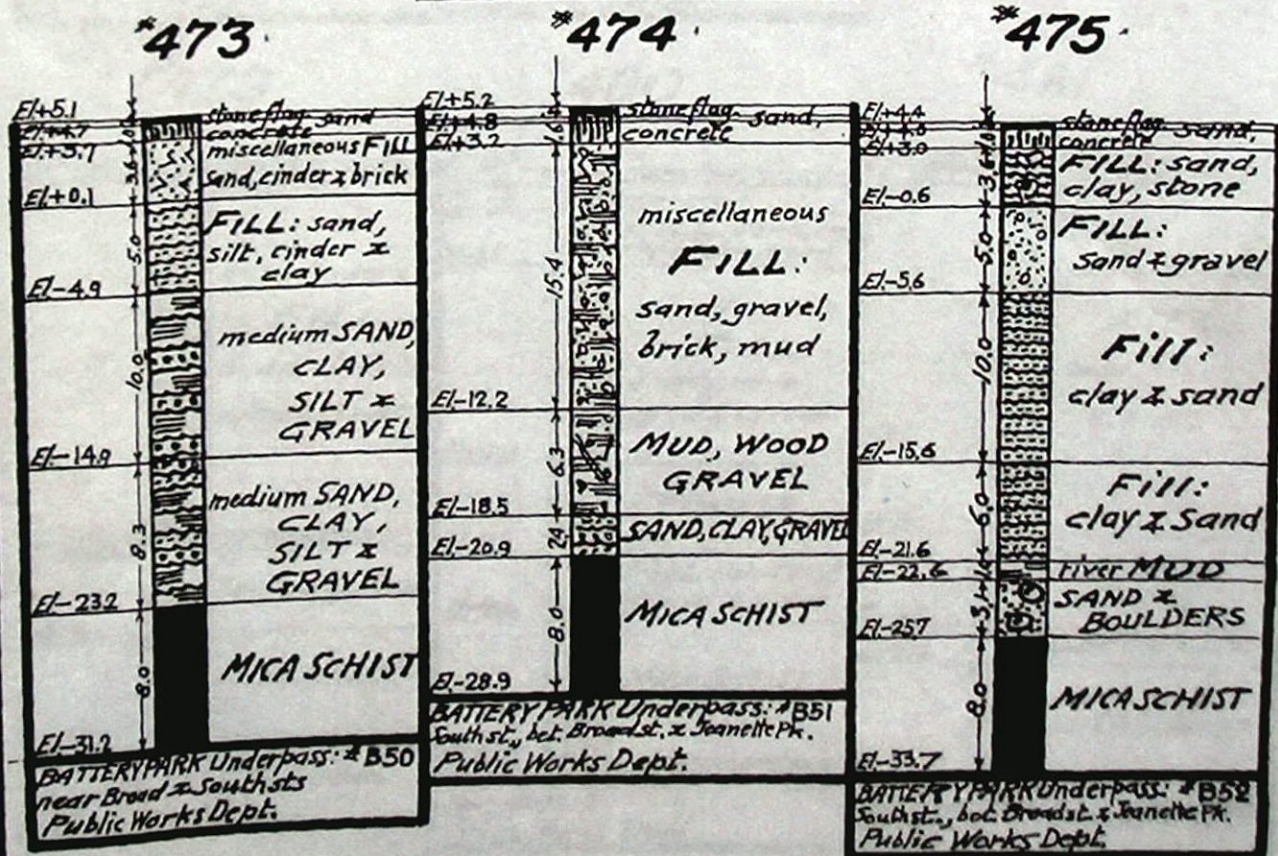 #473
El.+5.1
El.+4.7
El.+3.7
El.+0.1
El.-4.9
El.-14.9
El.-23.2
El.-31.2
3.6
5.0
10.0
8.3
8.0
stone flag sand
concrete
miscellaneous FILL
sand, cinder & brick
FILL: sand,
silt, cinder &
clay
medium SAND,
CLAY,
SILT &
GRAVEL
medium SAND,
CLAY,
SILT &
GRAVEL
MICA SCHIST
BATTERY PARK Underpass: #B50
near Broad & South sts
Public Works Dept.
#474
El.+5.2
El.+4.8
El.+3.2
El.-12.2
El.-18.5
El.-20.9
El.-28.9
.4
1.6
15.4
6.3
2.4
8.0
stone flag sand,
concrete
miscellaneous
FILL:
sand, gravel,
brick, mud
MUD, WOOD
GRAVEL
SAND, CLAY, GRAVEL
MICA SCHIST
BATTERY PARK Underpass: #B51
South st., bet. Broad st. & Jeanette Pk.
Public Works Dept.
#475
El.+4.4
El.+4.0
El.+3.0
El.-0.6
El.-5.6
El.-15.6
El.-21.6
El.-22.6
El.-25.7
El.-33.7
3.6
5.0
10.0
6.0
3.1
8.0
stone flag sand,
concrete
FILL: sand,
clay, stone
FILL:
sand & gravel
Fill:
clay & sand
Fill:
clay & Sand
river MUD
SAND &
BOULDERS
MICA SCHIST
BATTERY PARK Underpass: #B52
South st., bet. Broad st. & Jeanette Pk.
Public Works Dept.